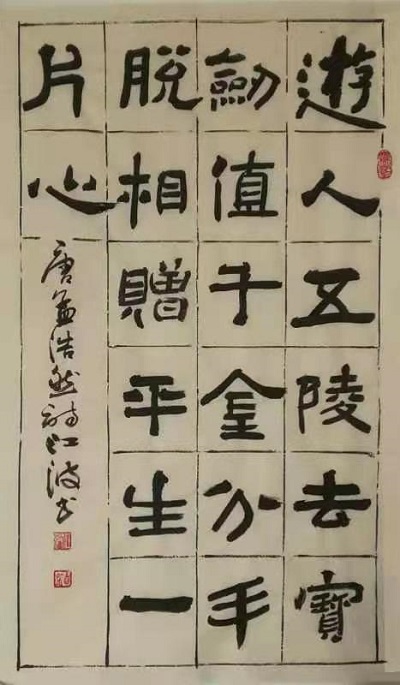 遊人五陵去寶
劒值千金分手
脫相贈平生一
片心
唐孟浩然詩江波书